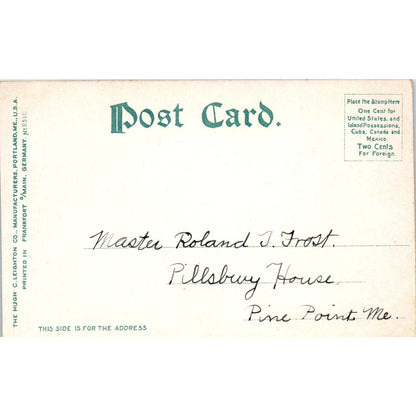 Post Card.
Place the Stamp Here
One Cent for
United States, and
Island Possessions,
Cuba, Canada and
Mexico.
Two Cents
For Foreign.
Master Roland T. Frost.
Pillsbury House.
Pine Point Me.
THIS SIDE IS FOR THE ADDRESS
THE HUGH C. LEIGHTON CO., MANUFACTURERS, PORTLAND, ME., U.S.A.
PRINTED IN FRANKFORT O/MAIN, GERMANY.